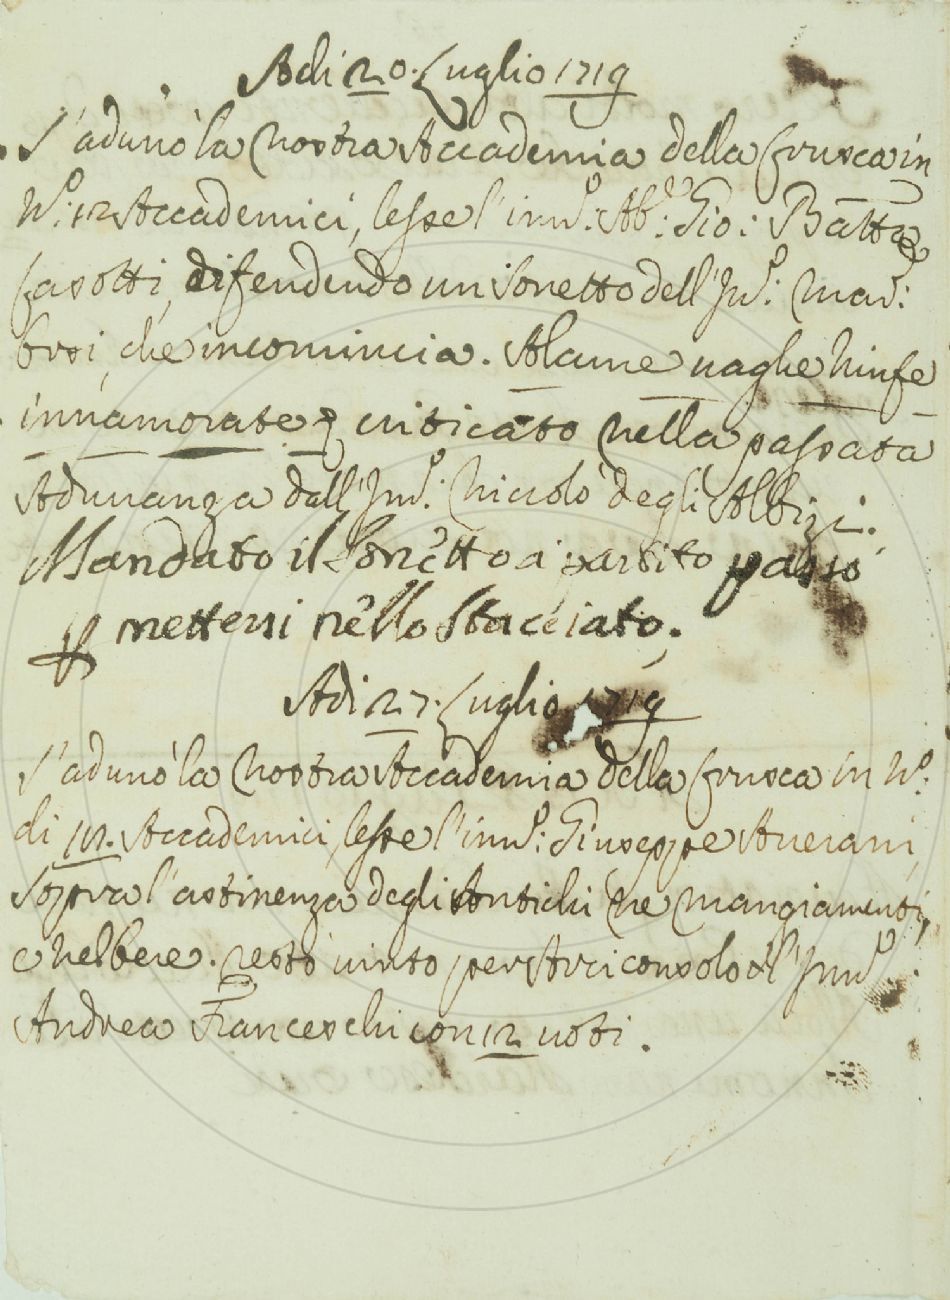 Adi 20. Luglio 1719
S'adunò la nostra Accademia della Crusca in
N.º: 12 Accademici, lesse l'inn.º: Ab.e: Gio: Batta
Casotti, difendendo un sonetto dell'Inn.º: Mar:
che incomincia. Alcune uaghe Ninfe
innamorate, criticato nella passata
Adunanza dall'Inn.º: Niccolò degli Albizi.
Mandato il Sonetto a partito passò
p mettersi nello Stacciato.
Adi 27. Luglio 1719
S'adunò la nostra Accademia della Crusca in N.º:
di Accademici, lesse l'inn.º: Giuseppe Auerani,
Sopra l'astinenza degli Antichi ne mangiamenti,
e nel bere. restò uinto per Arciconsolo l'Inn.º
Andrea Franceschi con 12 uoti.